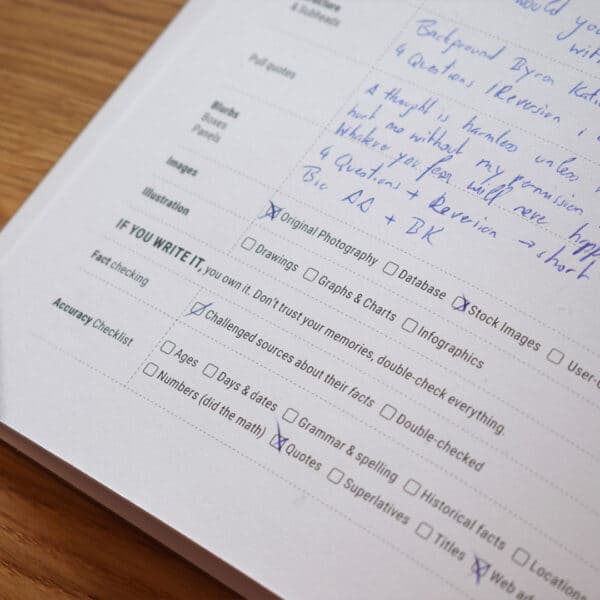 & Subheads
would you
with
Pull quotes
Background Byron Kati
4 Questions / Reversion
Blurbs
Boxes
Panels
A thought is harmless unless
hurt me without my permission
Whatever you fear will never happ
4 Questions + Reversion → short
Bio AA + BK
Images
Original Photography Database Stock Images User-G
Illustration
Drawings Graphs & Charts Infographics
IF YOU WRITE IT, you own it. Don't trust your memories, double-check everything.
Fact checking
Challenged sources about their facts Double-checked
Accuracy Checklist
Ages Days & dates Grammar & spelling Historical facts Locations
Numbers (did the math) Quotes Superlatives Titles Web ad